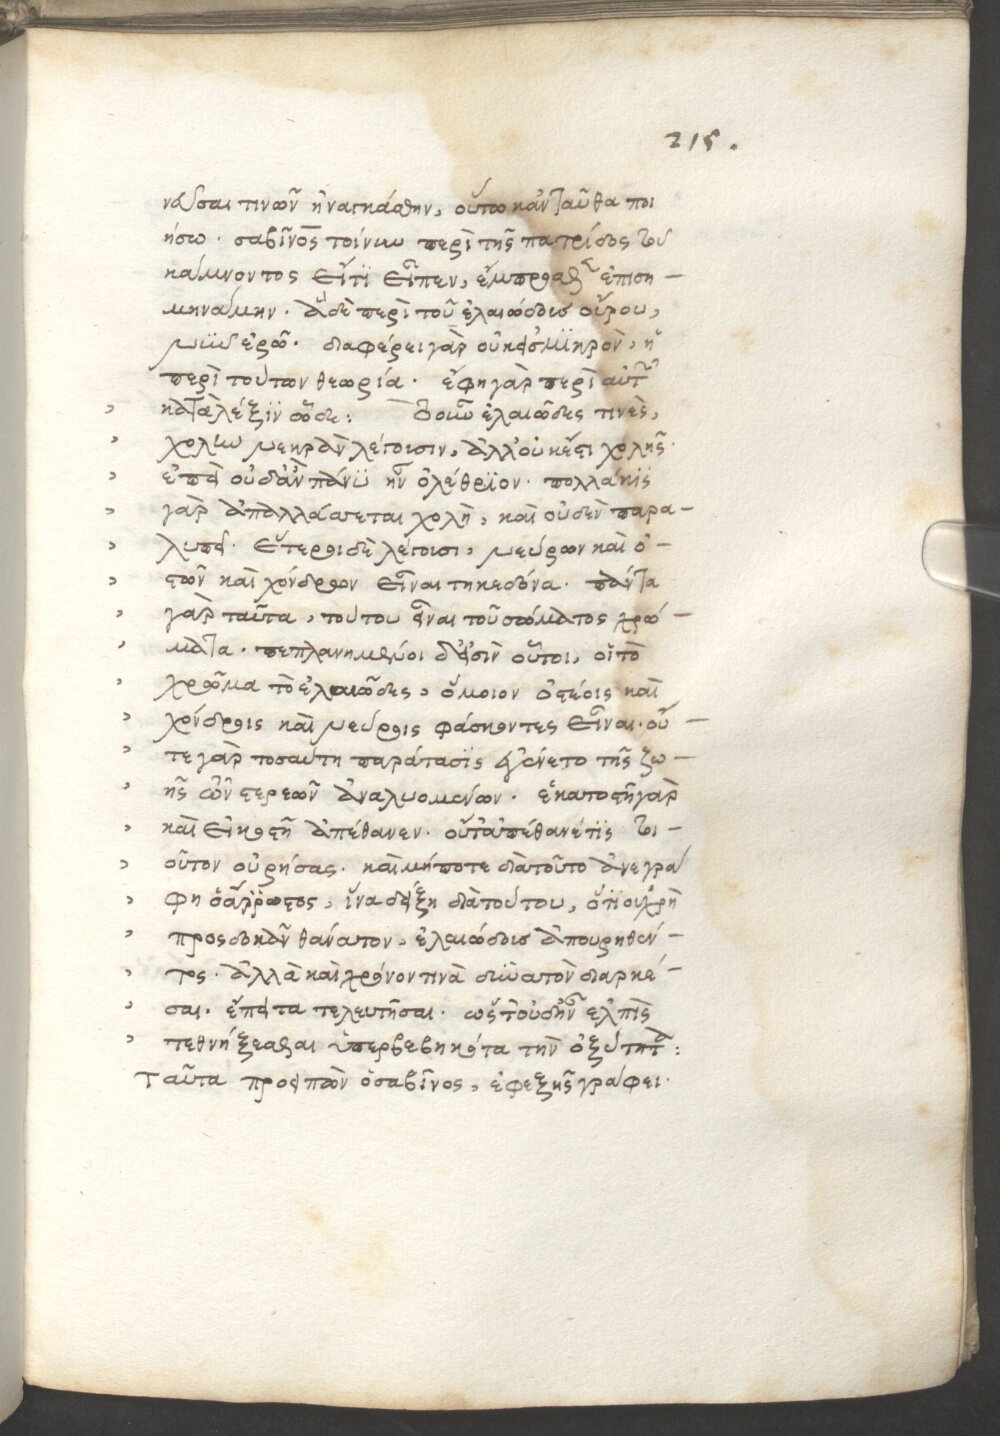 215.
νεῦσαί τινων ἠναγκάσθην, οὕτω κἀνταῦθα ποι
ήσω· σαβῖνος τοίνυν περὶ τῆς πατρίδος τοῦ
κάμνοντος εἴ τι εἶπεν, ἔμπροσθεν ἐπεση –
μηνάμην. ἃ δὲ περὶ τοῦ ἐλαιώδους οὔρου,
νῦν ἐρῶ. διαφέρει γὰρ οὐκ ἐς μικρὸν, ἡ
περὶ τούτων θεωρία. ἔφη γὰρ περὶ αὐτῶν
κατὰ λέξιν ὧδε: τὸ οὖν ἐλαιῶδες τινὲς,
χολὴν μὲν ἂν λέγοισιν, ἀλλ' οὐκ ἔστι χολῆς·
ἐπεὶ οὐδ' ἂν πάνυ ἦν ὀλέθριον. πολλάκις
γὰρ ἀπαλλάσσεται χολὴ, καὶ οὐδὲν παρα –
λυπεῖ. ἕτεροι δὲ λέγοισι, νεύρων καὶ ὀ –
στῶν καὶ χόνδρων εἶναι τηκεδόνα. πάντα
γὰρ ταῦτα, τούτου εἶναι τοῦ σώματος χρώ –
ματα. πεπλανημένοι δ' εἰσὶν οὗτοι, οἳ τὸ
χρῶμα τὸ ἐλαιῶδες, ὅμοιον ὀστέοις καὶ
χόνδροις καὶ νεύροις φάσκοντες εἶναι. οὔ –
τε γὰρ τοσαύτη παράτασις ἐγένετο τῆς ζω –
ῆς ὧν στερεῶν ἀναλυομένων. ἑκατοστῇ γὰρ
καὶ εἰκοστῇ ἀπέθανεν. οὔτ' ἀπέθανέ τις τοι –
οῦτον οὐρήσας. καὶ μήποτε διὰ τοῦτο ἀνεγρά
φη ὁ ἄρρωστος, ἵνα δείξῃ διὰ τούτου, ὅτι οὐ χρὴ
προσδοκᾶν θάνατον, ἐλαιώδους ἀπουρηθέν –
τος. ἀλλὰ καὶ χρόνον τινὰ δυνατὸν διαρκέ –
σαι. ἔπειτα τελευτῆσαι. ὥστ' οὐδ' ἦν ἐλπὶς
τεθνήξεσθαι ὑπερβεβηκότα τὴν ὀξύτητα:
Ταῦτα προειπὼν ὁ σαβῖνος, ἐφεξῆς γράφει.